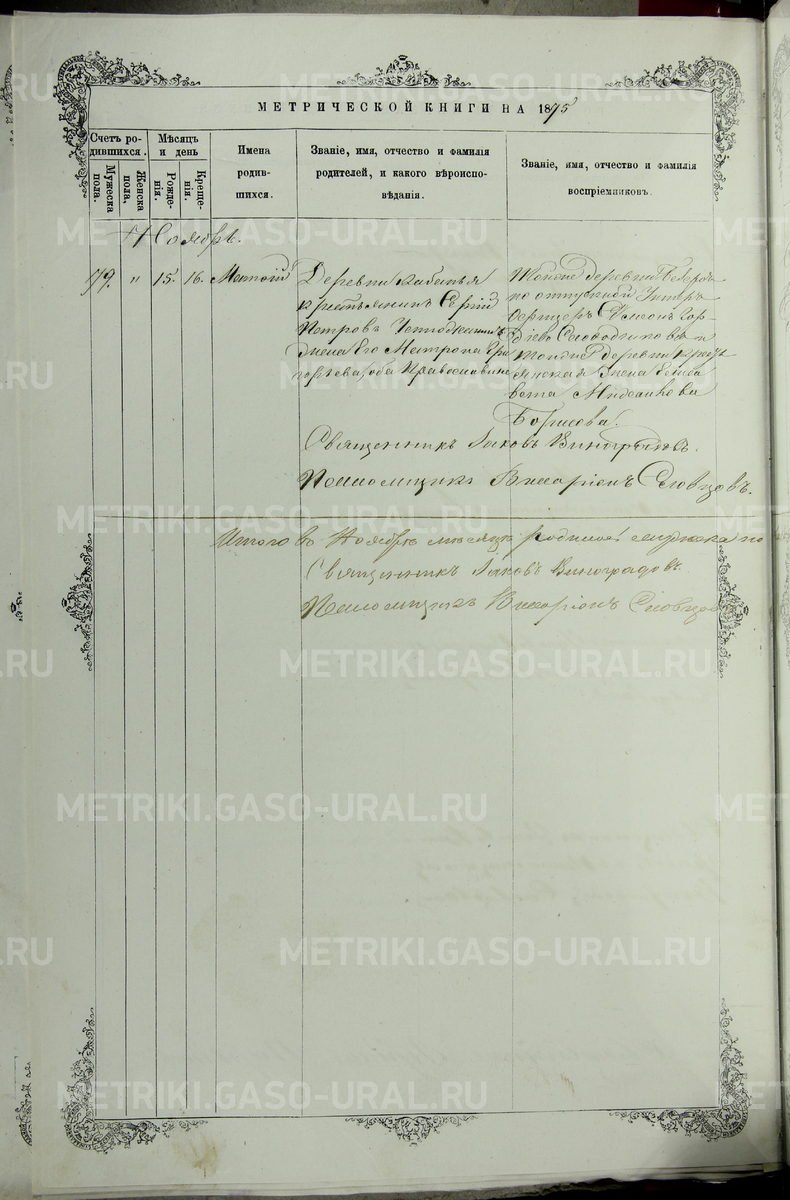 МЕТРИЧЕСКОЙ КНИГИ НА 1875
Счетъ ро-
дившихся.
Мужеска
пола.
Женска
пола,
Мѣсяцъ
и день
Рожде-
нія.
Креще-
нія.
Имена
родив-
шихся.
Званіе, имя, отчество и фамилія
родителей, и какого вѣроиспо-
вѣданія.
Званіе, имя, отчество и фамилія
воспріемниковъ.
Ноябрь.
79. " 15. 16. Матѳій
Деревни
крестьянинъ Сергій
Петровъ
жена Его Матрона Гри
горьева, оба Православные
Тойже деревни
по отпускной Унтеръ
Офицеръ Симеонъ Гор-
діевъ Слободчиковъ и
тойже деревни крест
янская жена Елиса
вета
Борисова.
Священникъ Іаковъ Виноградовъ.
Псаломщикъ Виссаріонъ Словцовъ.
Итого въ Ноябрѣ мѣсяцѣ родилось мужеска по
Священникъ Іаковъ Виноградовъ.
Псаломщикъ Виссаріонъ Словцов
METRIKI.GASO-URAL.RU